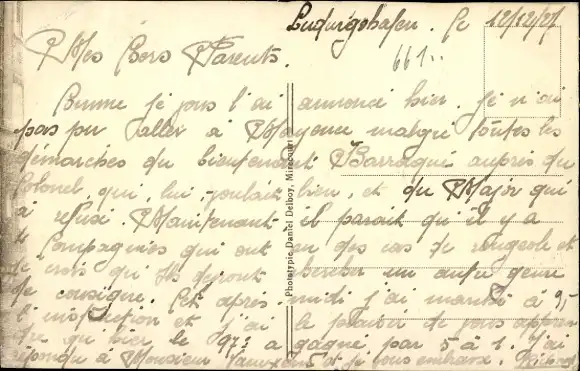 Ludwigshafen. le 12/12/27
661..
Mes Bons Parents.
Comme je vous l'ai annoncé hier. Je n'ai
pas pu aller à Mayence malgré toutes les
démarches du lieutenant Barragué auprès du
Colonel qui, lui, voulait bien, et du Major qui
a refusé. Maintenant il parait qu'il y a
Compagnies qui ont eu des cas de rougeole et
je crois qu'ils devront chercher un autre genre
de consigne. Cet après-midi j'ai marché à
l'instruction et j'ai le plaisir de vous appren
dre qui hier le a gagné par 5 à 1. J'ai
répondu à Monsieur et je vous embrasse.
Phototypie Daniel Delboy, Mirecourt